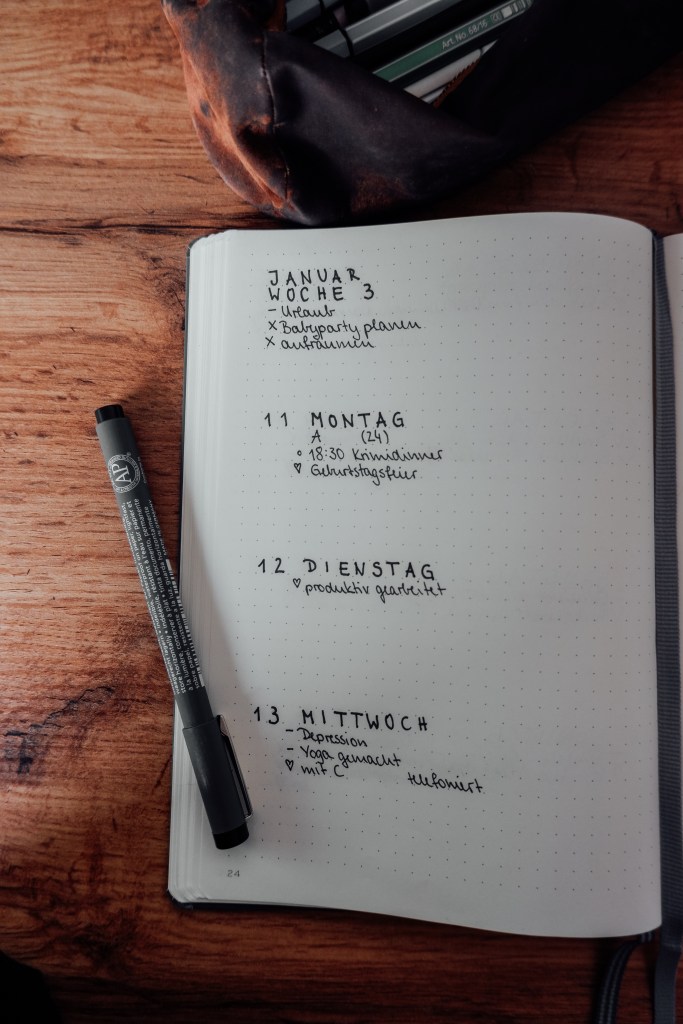 Art. No. 68/16
JANUAR
WOCHE 3
- Urlaub
x Babyparty planen
x aufräumen
11 MONTAG
A (24)
° 18:30 Krimidinner
♡ Geburtstagsfeier
12 DIENSTAG
♡ produktiv gearbeitet
13 MITTWOCH
- Depression
- Yoga gemacht
♡ mit C telefoniert
24
AP